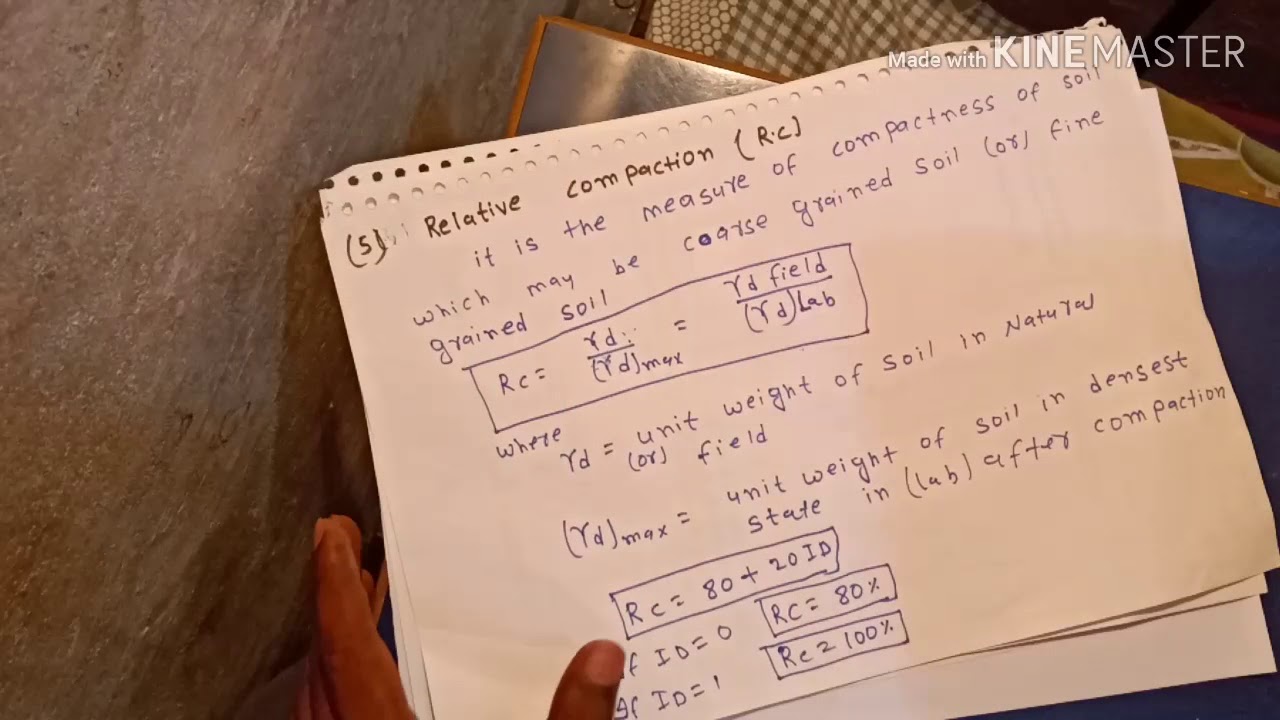 Made with KINEMASTER
(5) Relative compaction (R.C)
it is the measure of compactness of soil
which may be coarse grained soil (or) fine
grained soil
Rc = γd / (γd)max = γd field / (γd)Lab
where
γd = unit weight of soil in Natural
(or) field
(γd)max = unit weight of soil in densest
state in (lab) after compaction
Rc = 80 + 20 ID
If ID = 0 Rc = 80%
If ID = 1 Rc = 100%